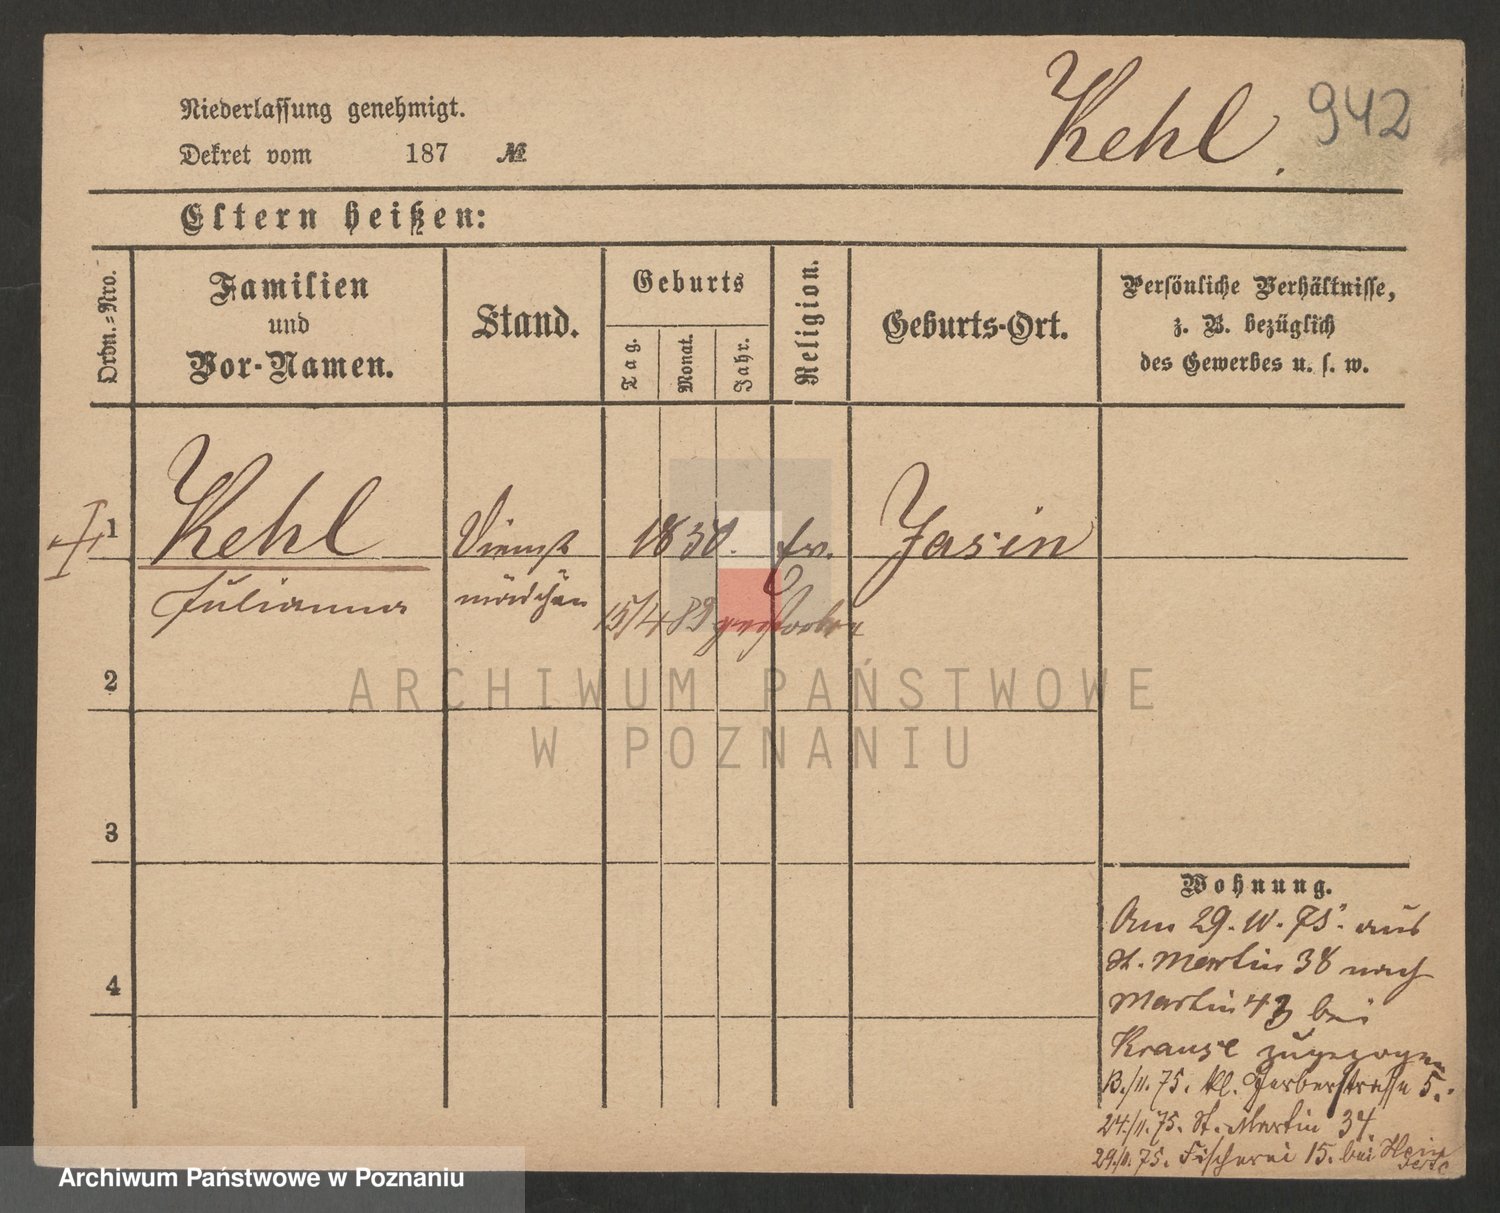 Kehl.
942
Niederlassung genehmigt.
Dekret vom 187 №
Eltern heißen:
Ordn.=Nro.
Familien
und
Vor-Namen.
Stand.
Geburts
Tag.
Monat.
Jahr.
Religion.
Geburts-Ort.
Persönliche Verhältnisse,
z. B. bezüglich
des Gewerbes u. s. w.
1
Kehl
Dienst
1838.
Ev.
Jasin
Julianna
mädchen
15/4 89 gestorben
2
ARCHIWUM PAŃSTWOWE
W POZNANIU
3
Wohnung.
Am 29. 75. aus
St. Martin 38 nach
4
Martin 43 bei
Krause zugezogen
75. kl. Gerberstrasse 5.
24./11. 75. St. Martin 34
29./11. 75. Fischerei 15. bei
Archiwum Państwowe w Poznaniu